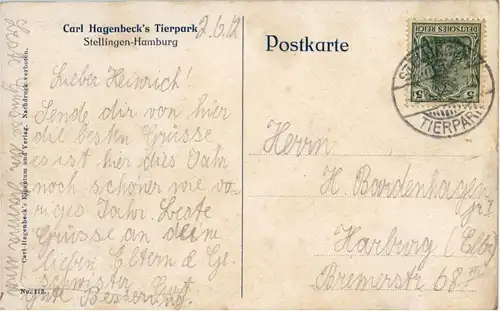 Carl Hagenbeck's Tierpark
Stellingen-Hamburg
2.6.12
Postkarte
DEUTSCHES REICH
5 5
TIERPARK
Lieber Heinrich!
Sende dir von hier
die besten Grüsse
es ist hier dies Jahr
noch schöner wie vo-
riges Jahr. Beste
Grüsse an deine
lieben Eltern & Ge-
schwister Curt
Gute Besserung.
Herrn
H. Bardenhagen
Harburg (Elbe)
Bremerstr 68
Carl Hagenbeck's Eigentum und Verlag. Nachdruck verboten.
No. 112.